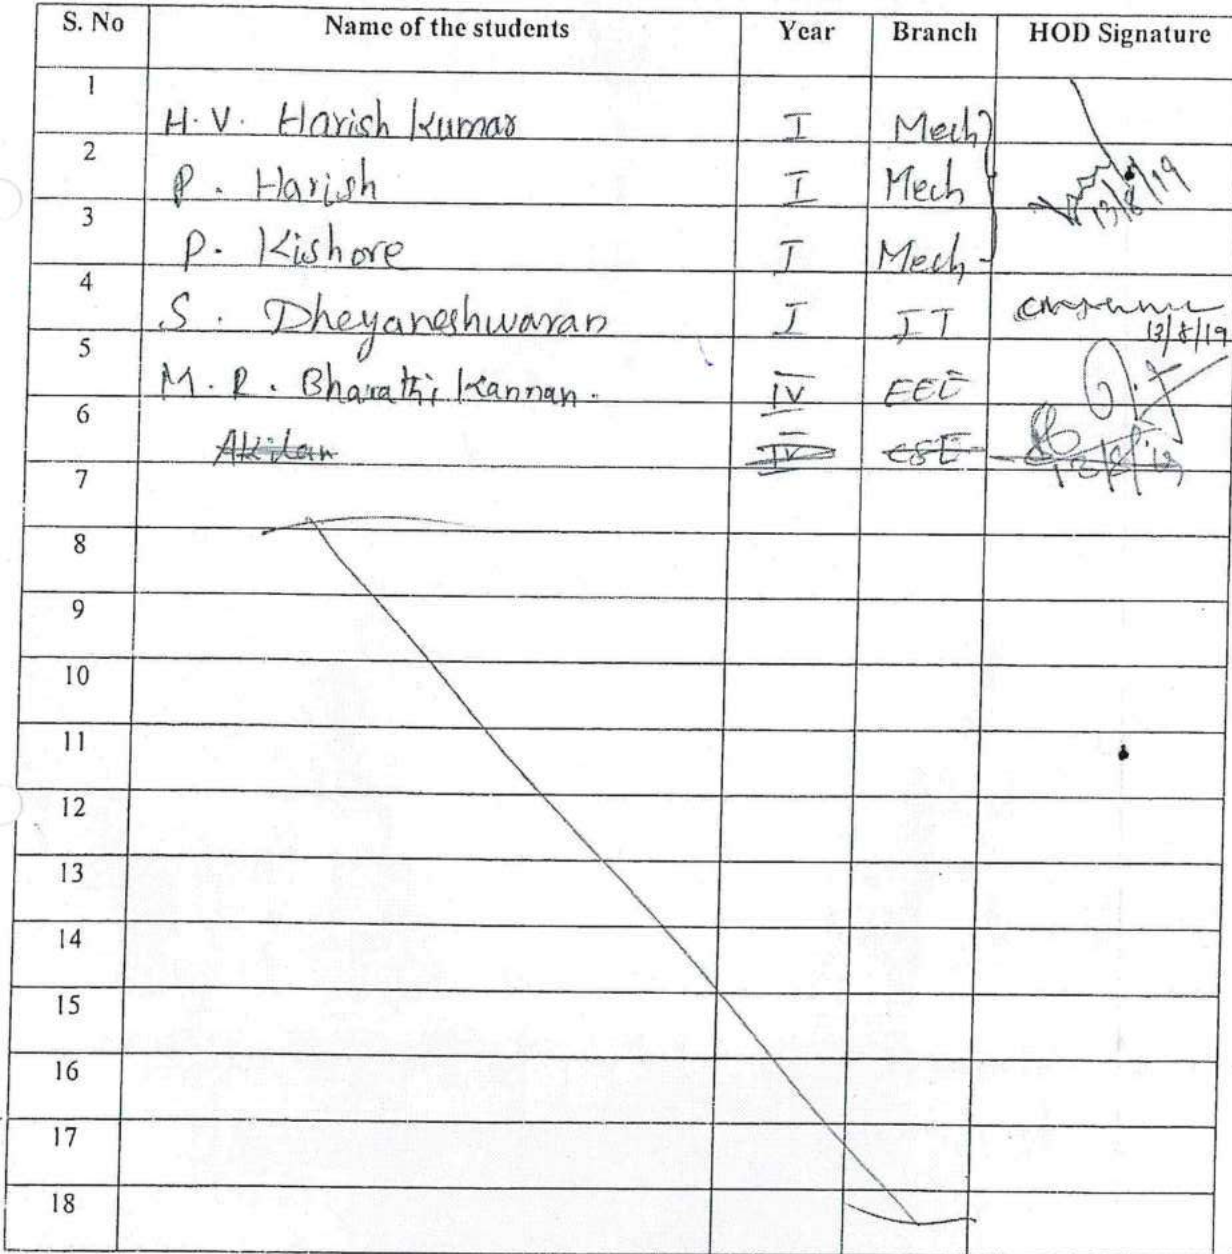 S. No Name of the students Year Branch HOD Signature
1 H. V. Harish Kumar I Mech
2 P. Harish I Mech 13/8/19
3 P. Kishore I Mech
4 S. Dheyaneshwaran I IT 13/8/19
5 M. R. Bharathi Kannan. IV EEE
6 Akilan IV CSE 13/8/19
7
8
9
10
11
12
13
14
15
16
17
18